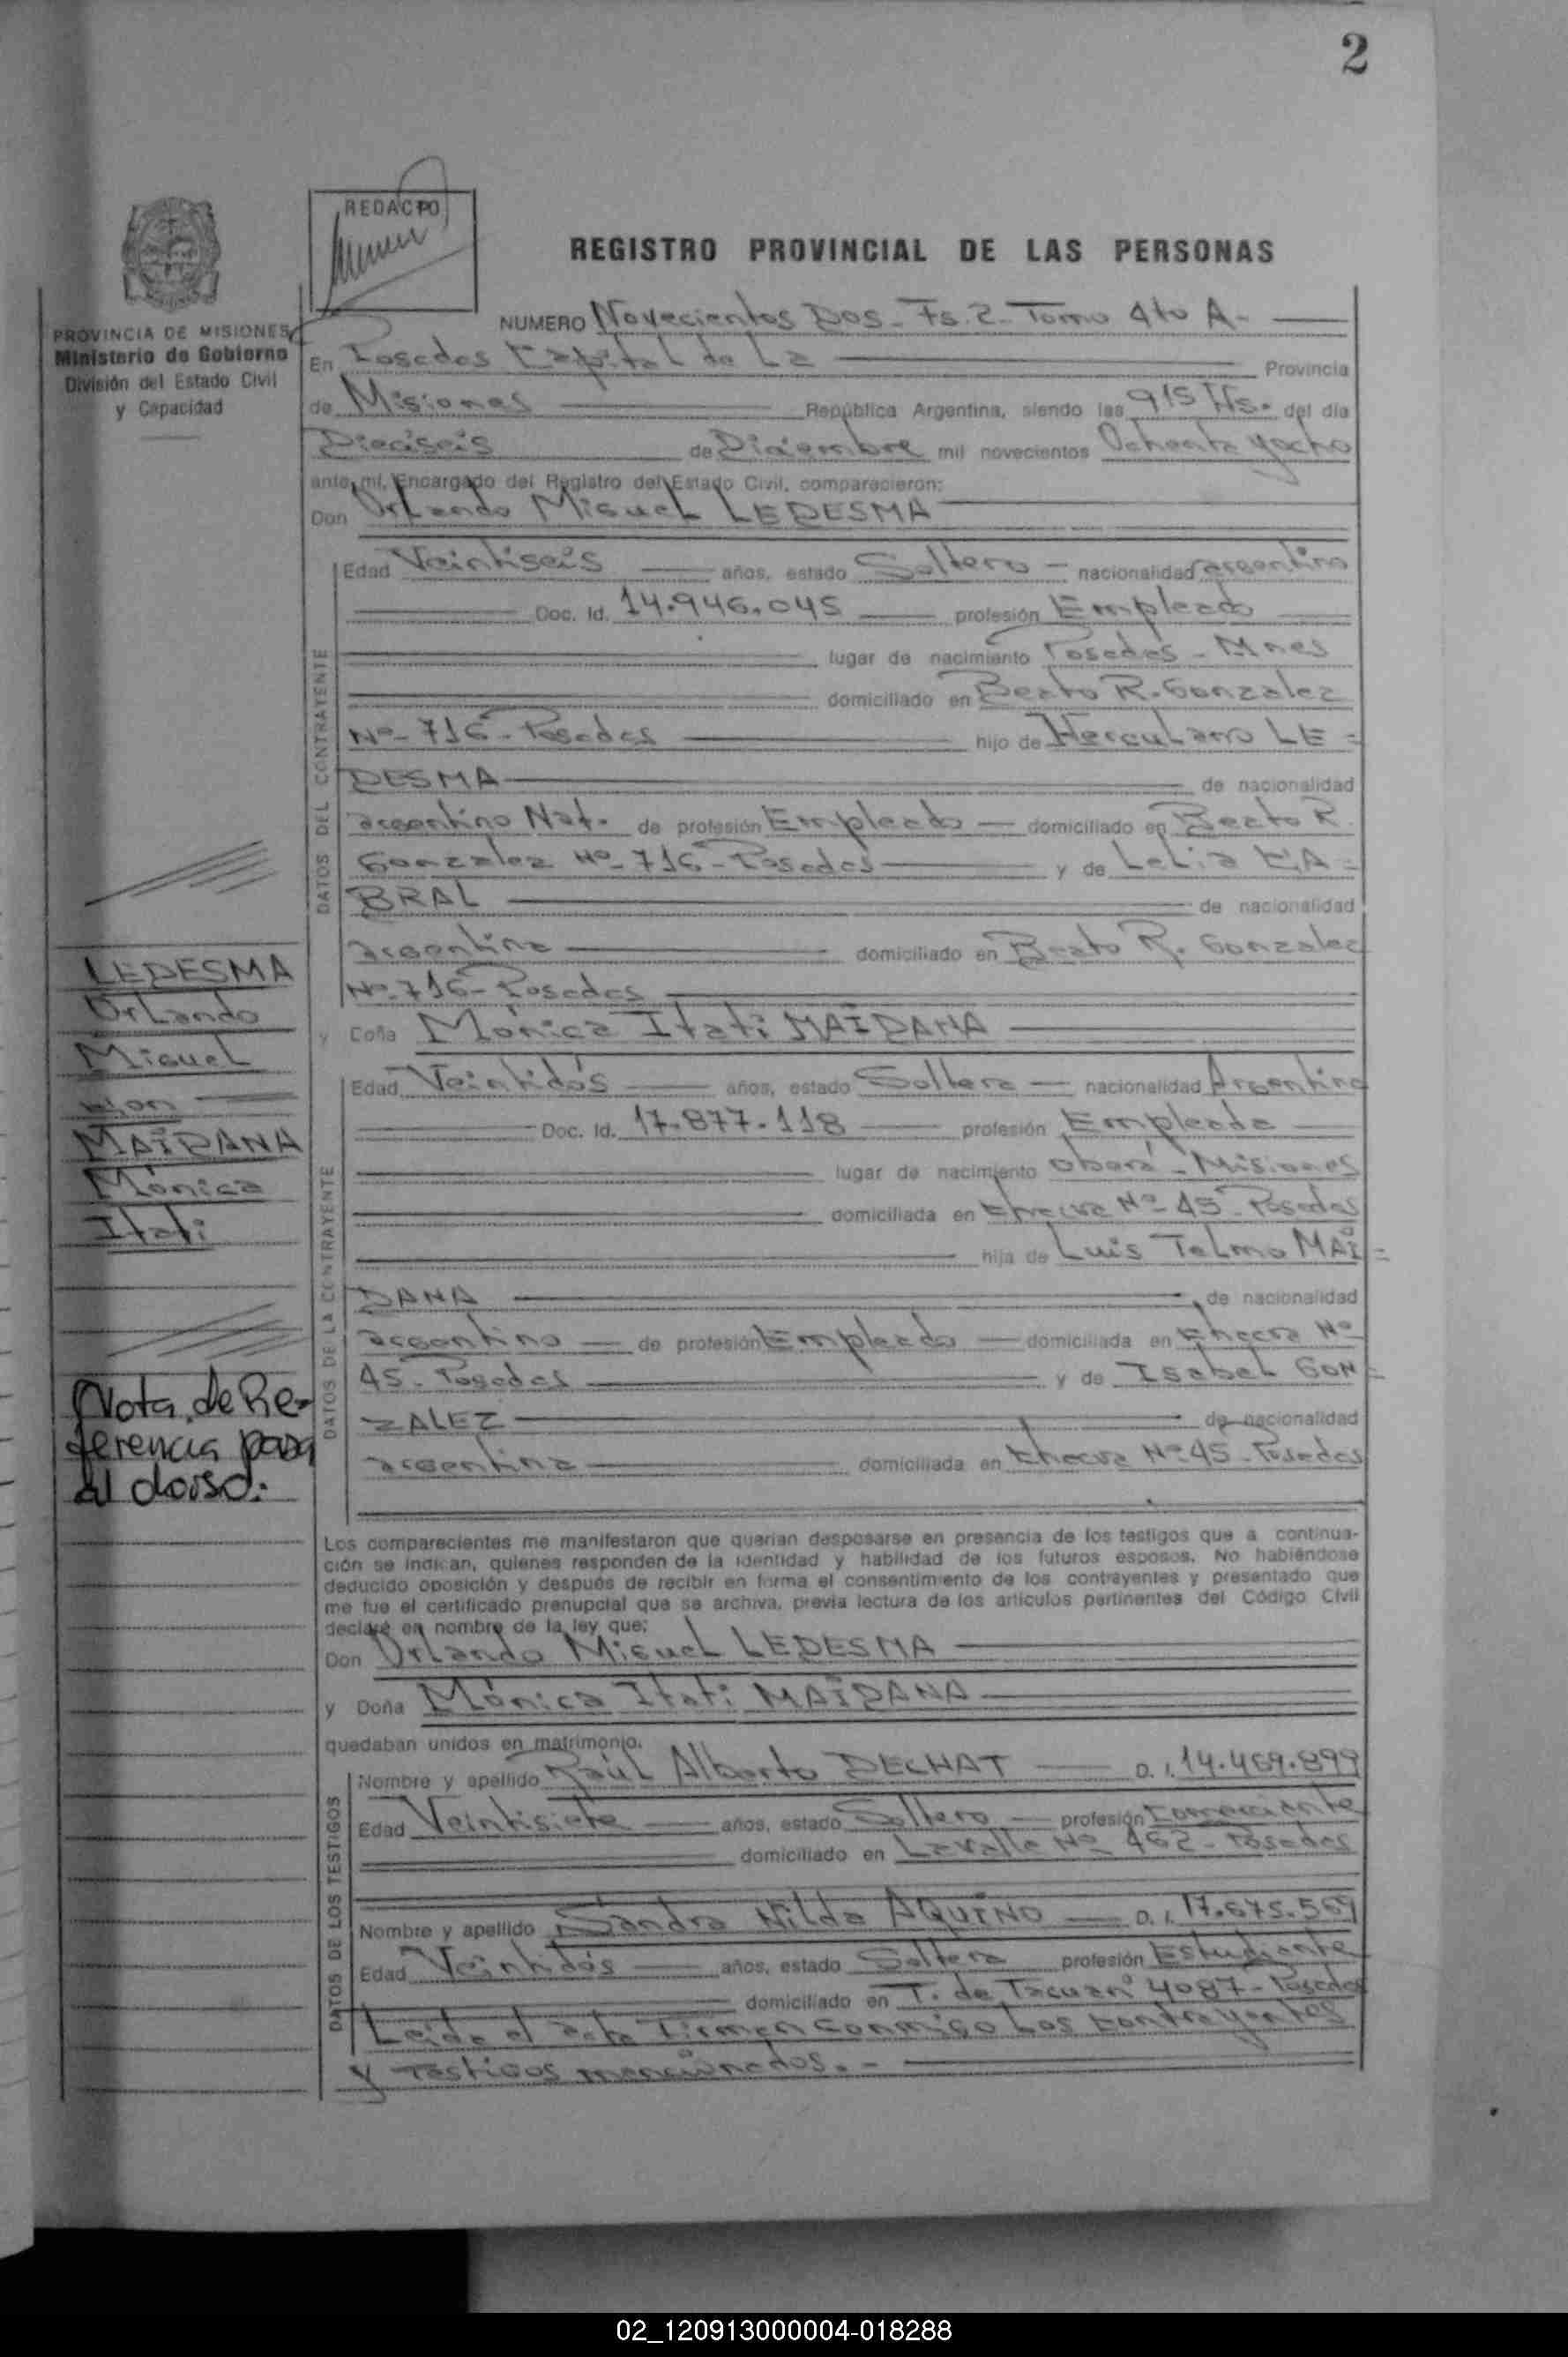 2
REDACTO
REGISTRO PROVINCIAL DE LAS PERSONAS
PROVINCIA DE MISIONES
Ministerio de Gobierno
División del Estado Civil
y Capacidad
NUMERO Novecientos Dos - Fs. 2 - Tomo 4to A -
En Posadas Capital de La Provincia
de Misiones República Argentina, siendo las 9 15 Hs. del día
Dieciseis de Diciembre mil novecientos Ochenta y ocho
ante mi, Encargado del Registro del Estado Civil, comparecieron:
Don Orlando Miguel LEDESMA
DATOS DEL CONTRAYENTE
Edad Veintiseis años, estado Soltero - nacionalidad argentino
Doc. Id. 14.946.045 profesión Empleado
lugar de nacimiento Posadas - Mnes
domiciliado en Beato R. Gonzalez
Nº 716 - Posadas hijo de Herculano LE=
DESMA de nacionalidad
argentino Nat. de profesión Empleado - domiciliado en Beato R.
Gonzalez Nº 716 - Posadas y de Lelia CA=
BRAL de nacionalidad
argentina domiciliado en Beato R. Gonzalez
Nº 716 - Posadas
y Doña Mónica Itatí MAIDANA
DATOS DE LA CONTRAYENTE
Edad Veintidós años, estado Soltera - nacionalidad Argentina
Doc. Id. 17.877.118 profesión Empleada
lugar de nacimiento Oberá - Misiones
domiciliada en Nº 45 - Posadas
hija de Luis Telmo MAI=
DANA de nacionalidad
argentino - de profesión Empleado - domiciliada en Nº
45 - Posadas y de Isabel GON=
ZALEZ de nacionalidad
argentina domiciliada en Nº 45 - Posadas
LEDESMA
Orlando
Miguel
con
MAIDANA
Mónica
Itatí
Nota de Re-
ferencia pasa
al dorso.
Los comparecientes me manifestaron que querian desposarse en presencia de los testigos que a continua-
ción se indican, quienes responden de la identidad y habilidad de los futuros esposos. No habiéndose
deducido oposición y después de recibir en forma el consentimiento de los contrayentes y presentado que
me fue el certificado prenupcial que se archiva, previa lectura de los articulos pertinentes del Código Civil
declaré en nombre de la ley que:
Don Orlando Miguel LEDESMA
y Doña Mónica Itatí MAIDANA
quedaban unidos en matrimonio.
DATOS DE LOS TESTIGOS
Nombre y apellido Raúl Alberto DECHAT D.I. 14.469.899
Edad Veintisiete años, estado Soltero - profesión Comerciante
domiciliado en Lavalle Nº 462 - Posadas
Nombre y apellido Sandra Nilda AQUINO D.I. 17.675.569
Edad Veintidós años, estado Soltera profesión Estudiante
domiciliado en T. de Tacuarí 4087 - Posadas
Leida el acta Firman conmigo Los contrayentes
y Testigos mencionados. -
02_120913000004-018288